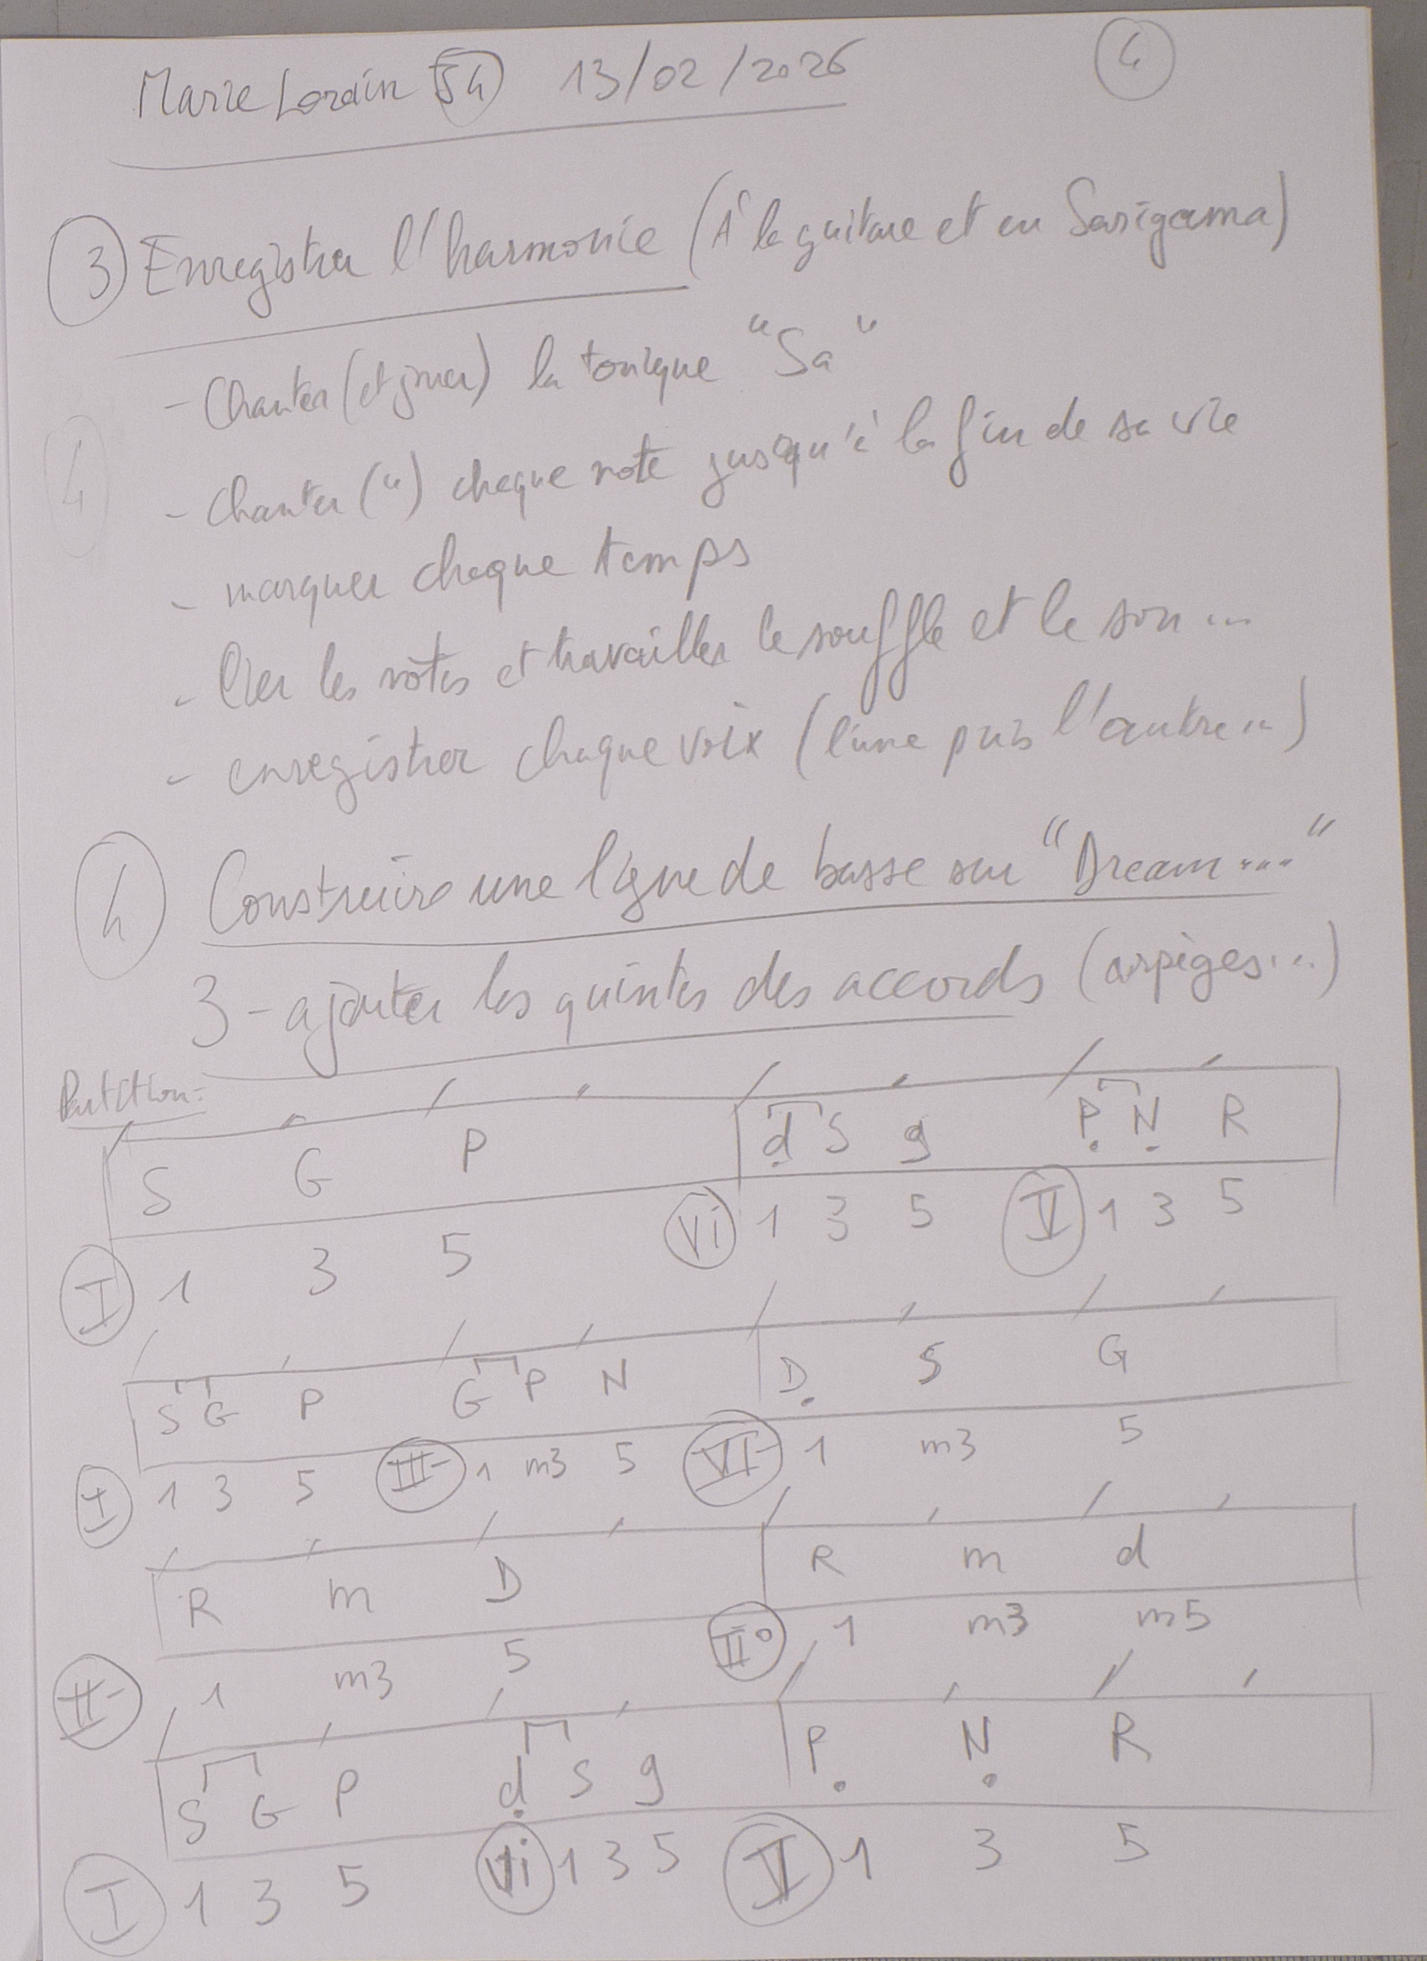 Marie Lorain S4 13/02/2026 4
3 Enregistrer l'harmonie (à la guitare et en Sarigama)
- Chanter (et jouer) la tonique "Sa"
4
- Chanter (") chaque note jusqu'à la fin de sa vie
- marquer chaque temps
- lier les notes et travailler le souffle et le son ...
- enregistrer chaque voix (l'une puis l'autre..)
4 Construire une ligne de basse sur "Dream...."
3 - ajouter les quintes des accords (arpèges...)
Partition:
S G P d S g P N R
I 1 3 5 Vi 1 3 5 V 1 3 5
S G P G P N D S G
I 1 3 5 III- 1 m3 5 VI- 1 m3 5
R m D R m d
II- 1 m3 5 II° 1 m3 m5
S G P d S g P N R
I 1 3 5 Vi 1 3 5 V 1 3 5